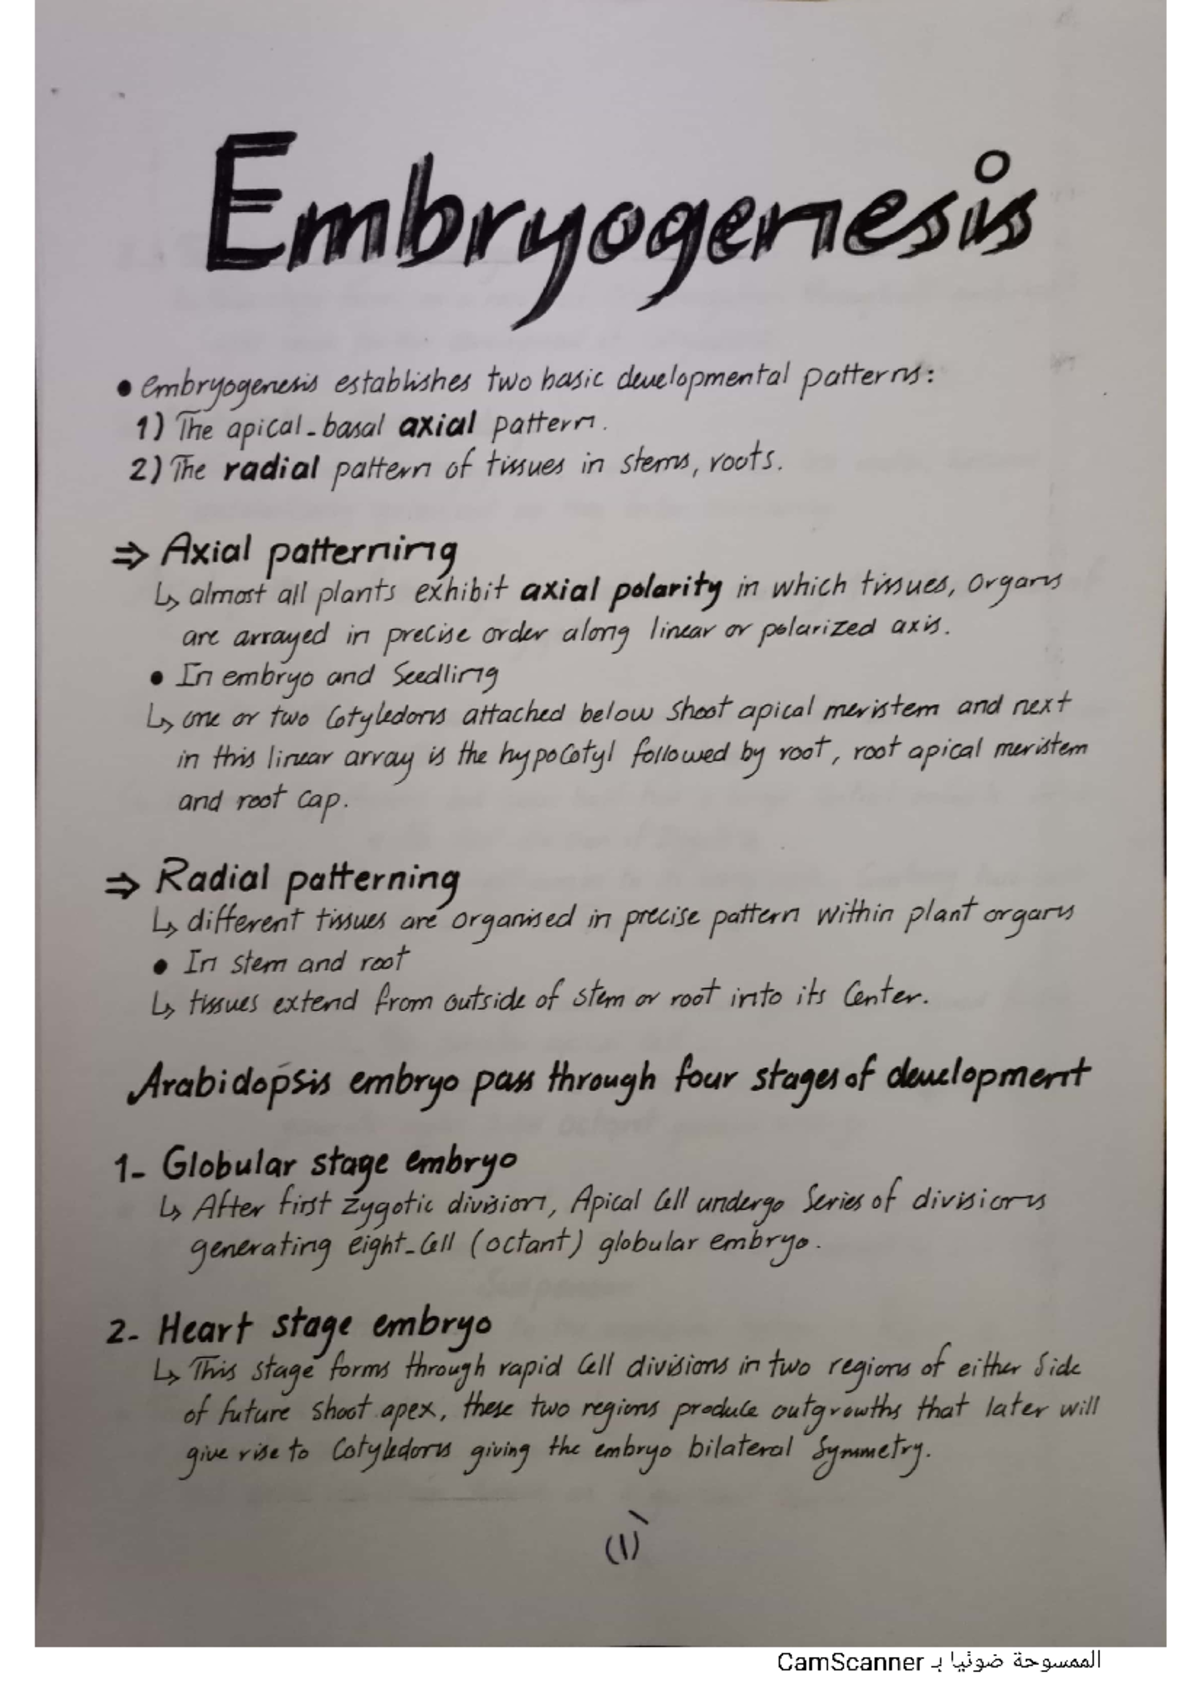 Embryogenesis
• embryogenesis establishes two basic developmental patterns:
1) The apical-basal axial pattern.
2) The radial pattern of tissues in stems, roots.
⇒ Axial patterning
↳ almost all plants exhibit axial polarity in which tissues, organs
are arrayed in precise order along linear or polarized axis.
• In embryo and Seedling
↳ one or two Cotyledons attached below Shoot apical meristem and next
in this linear array is the hypocotyl followed by root, root apical meristem
and root cap.
⇒ Radial patterning
↳ different tissues are organised in precise pattern within plant organs
• In stem and root
↳ tissues extend from outside of stem or root into its Center.
Arabidopsis embryo pass through four stages of development
1- Globular stage embryo
↳ After first Zygotic division, Apical Cell undergo Series of divisions
generating eight-Cell (octant) globular embryo.
2- Heart stage embryo
↳ This stage forms through rapid Cell divisions in two regions of either Side
of future Shoot apex, these two regions produce outgrowths that later will
give rise to Cotyledons giving the embryo bilateral Symmetry.
(1)
الممسوحة ضوئيا بـ CamScanner